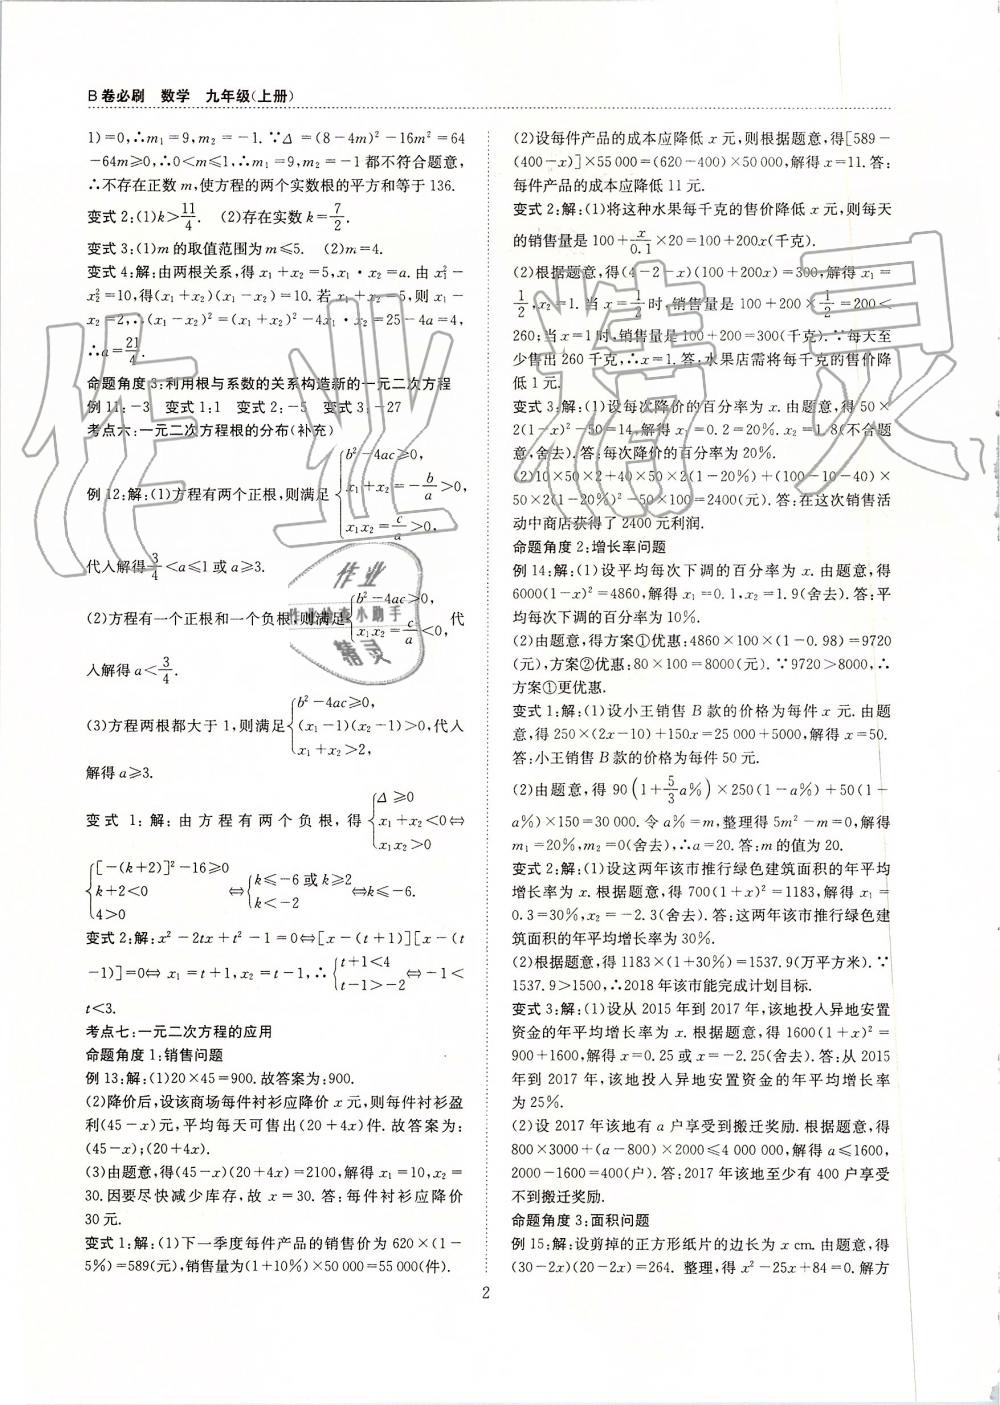 B卷必刷 数学 九年级(上册)
1)=0,∴m₁=9,m₂=-1.∵Δ=(8-4m)²-16m²=64
-64m≥0,∴0<m≤1,∴m₁=9,m₂=-1都不符合题意,
∴不存在正数m,使方程的两个实数根的平方和等于136.
变式2:(1)k>11/4. (2)存在实数k=7/2.
变式3:(1)m的取值范围为m≤5. (2)m=4.
变式4:解:由两根关系,得x₁+x₂=5,x₁·x₂=a.由x₁²-
x₂²=10,得(x₁+x₂)(x₁-x₂)=10.若x₁+x₂=5,则x₁-
x₂=2,∴(x₁-x₂)²=(x₁+x₂)²-4x₁·x₂=25-4a=4,
∴a=21/4.
命题角度3:利用根与系数的关系构造新的一元二次方程
例11:-3 变式1:1 变式2:-5 变式3:-27
考点六:一元二次方程根的分布(补充)
例12:解:(1)方程有两个正根,则满足{b²-4ac≥0,
x₁+x₂=-b/a>0,
x₁x₂=c/a>0,
代入解得3/4<a≤1或a≥3.
(2)方程有一个正根和一个负根,则满足{b²-4ac>0,
x₁x₂=c/a<0, 代
入解得a<3/4.
(3)方程两根都大于1,则满足{b²-4ac≥0,
(x₁-1)(x₂-1)>0,代入
x₁+x₂>2,
解得a≥3.
变式1:解:由方程有两个负根,得{Δ≥0
x₁+x₂<0⇔
x₁x₂>0
{[-(k+2)]²-16≥0
k+2<0
4>0
⇔{k≤-6或k≥2
k<-2
⇔k≤-6.
变式2:解:x²-2tx+t²-1=0⇔[x-(t+1)][x-(t
-1)]=0⇔x₁=t+1,x₂=t-1,∴{t+1<4
t-1>-2
⇔-1<
t<3.
考点七:一元二次方程的应用
命题角度1:销售问题
例13:解:(1)20×45=900.故答案为:900.
(2)降价后,设该商场每件衬衫应降价x元,则每件衬衫盈
利(45-x)元,平均每天可售出(20+4x)件.故答案为:
(45-x);(20+4x).
(3)由题意,得(45-x)(20+4x)=2100,解得x₁=10,x₂=
30.因要尽快减少库存,故x=30.答:每件衬衫应降价
30元.
变式1:解:(1)下一季度每件产品的销售价为620×(1-
5%)=589(元),销售量为(1+10%)×50 000=55 000(件).
(2)设每件产品的成本应降低x元,则根据题意,得[589-
(400-x)]×55 000=(620-400)×50 000,解得x=11.答:
每件产品的成本应降低11元.
变式2:解:(1)将这种水果每千克的售价降低x元,则每天
的销售量是100+x/0.1×20=100+200x(千克).
(2)根据题意,得(4-2-x)(100+200x)=300,解得x₁=
1/2,x₂=1.当x=1/2时,销售量是100+200×1/2=200<
260;当x=1时,销售量是100+200=300(千克).∵每天至
少售出260千克,∴x=1.答:水果店需将每千克的售价降
低1元.
变式3:解:(1)设每次降价的百分率为x.由题意,得50×
2(1-x)²-50=14,解得x₁=0.2=20%.x₂=1.8(不合题
意,舍去).答:每次降价的百分率为20%.
(2)10×50×2+40×50×2(1-20%)+(100-10-40)×
50×2(1-20%)²-50×100=2400(元).答:在这次销售活
动中商店获得了2400元利润.
命题角度2:增长率问题
例14:解:(1)设平均每次下调的百分率为x.由题意,得
6000(1-x)²=4860,解得x₁=0.1,x₂=1.9(舍去).答:平
均每次下调的百分率为10%.
(2)由题意,得方案①优惠:4860×100×(1-0.98)=9720
(元),方案②优惠:80×100=8000(元).∵9720>8000,∴
方案①更优惠.
变式1:解:(1)设小王销售B款的价格为每件x元.由题
意,得250×(2x-10)+150x=25 000+5000,解得x=50.
答:小王销售B款的价格为每件50元.
(2)由题意,得90(1+5/3a%)×250(1-a%)+50(1+
a%)×150=30 000.令a%=m,整理得5m²-m=0,解得
m₁=20%,m₂=0(舍去),∴a=20.答:m的值为20.
变式2:解:(1)设这两年该市推行绿色建筑面积的年平均
增长率为x.根据题意,得700(1+x)²=1183,解得x₁=
0.3=30%,x₂=-2.3(舍去).答:这两年该市推行绿色建
筑面积的年平均增长率为30%.
(2)根据题意,得1183×(1+30%)=1537.9(万平方米).∵
1537.9>1500,∴2018年该市能完成计划目标.
变式3:解:(1)设从2015年到2017年,该地投入异地安置
资金的年平均增长率为x.根据题意,得1600(1+x)²=
900+1600,解得x=0.25或x=-2.25(舍去).答:从2015
年到2017年,该地投入异地安置资金的年平均增长率
为25%.
(2)设2017年该地有a户享受到搬迁奖励.根据题意,得
800×3000+(a-800)×2000≤4 000 000,解得a≤1600,
2000-1600=400(户).答:2017年该地至少有400户享受
不到搬迁奖励.
命题角度3:面积问题
例15:解:设剪掉的正方形纸片的边长为x cm.由题意,得
(30-2x)(20-2x)=264.整理,得x²-25x+84=0.解方
2
作业精灵
作业
作业检查小助手
精灵